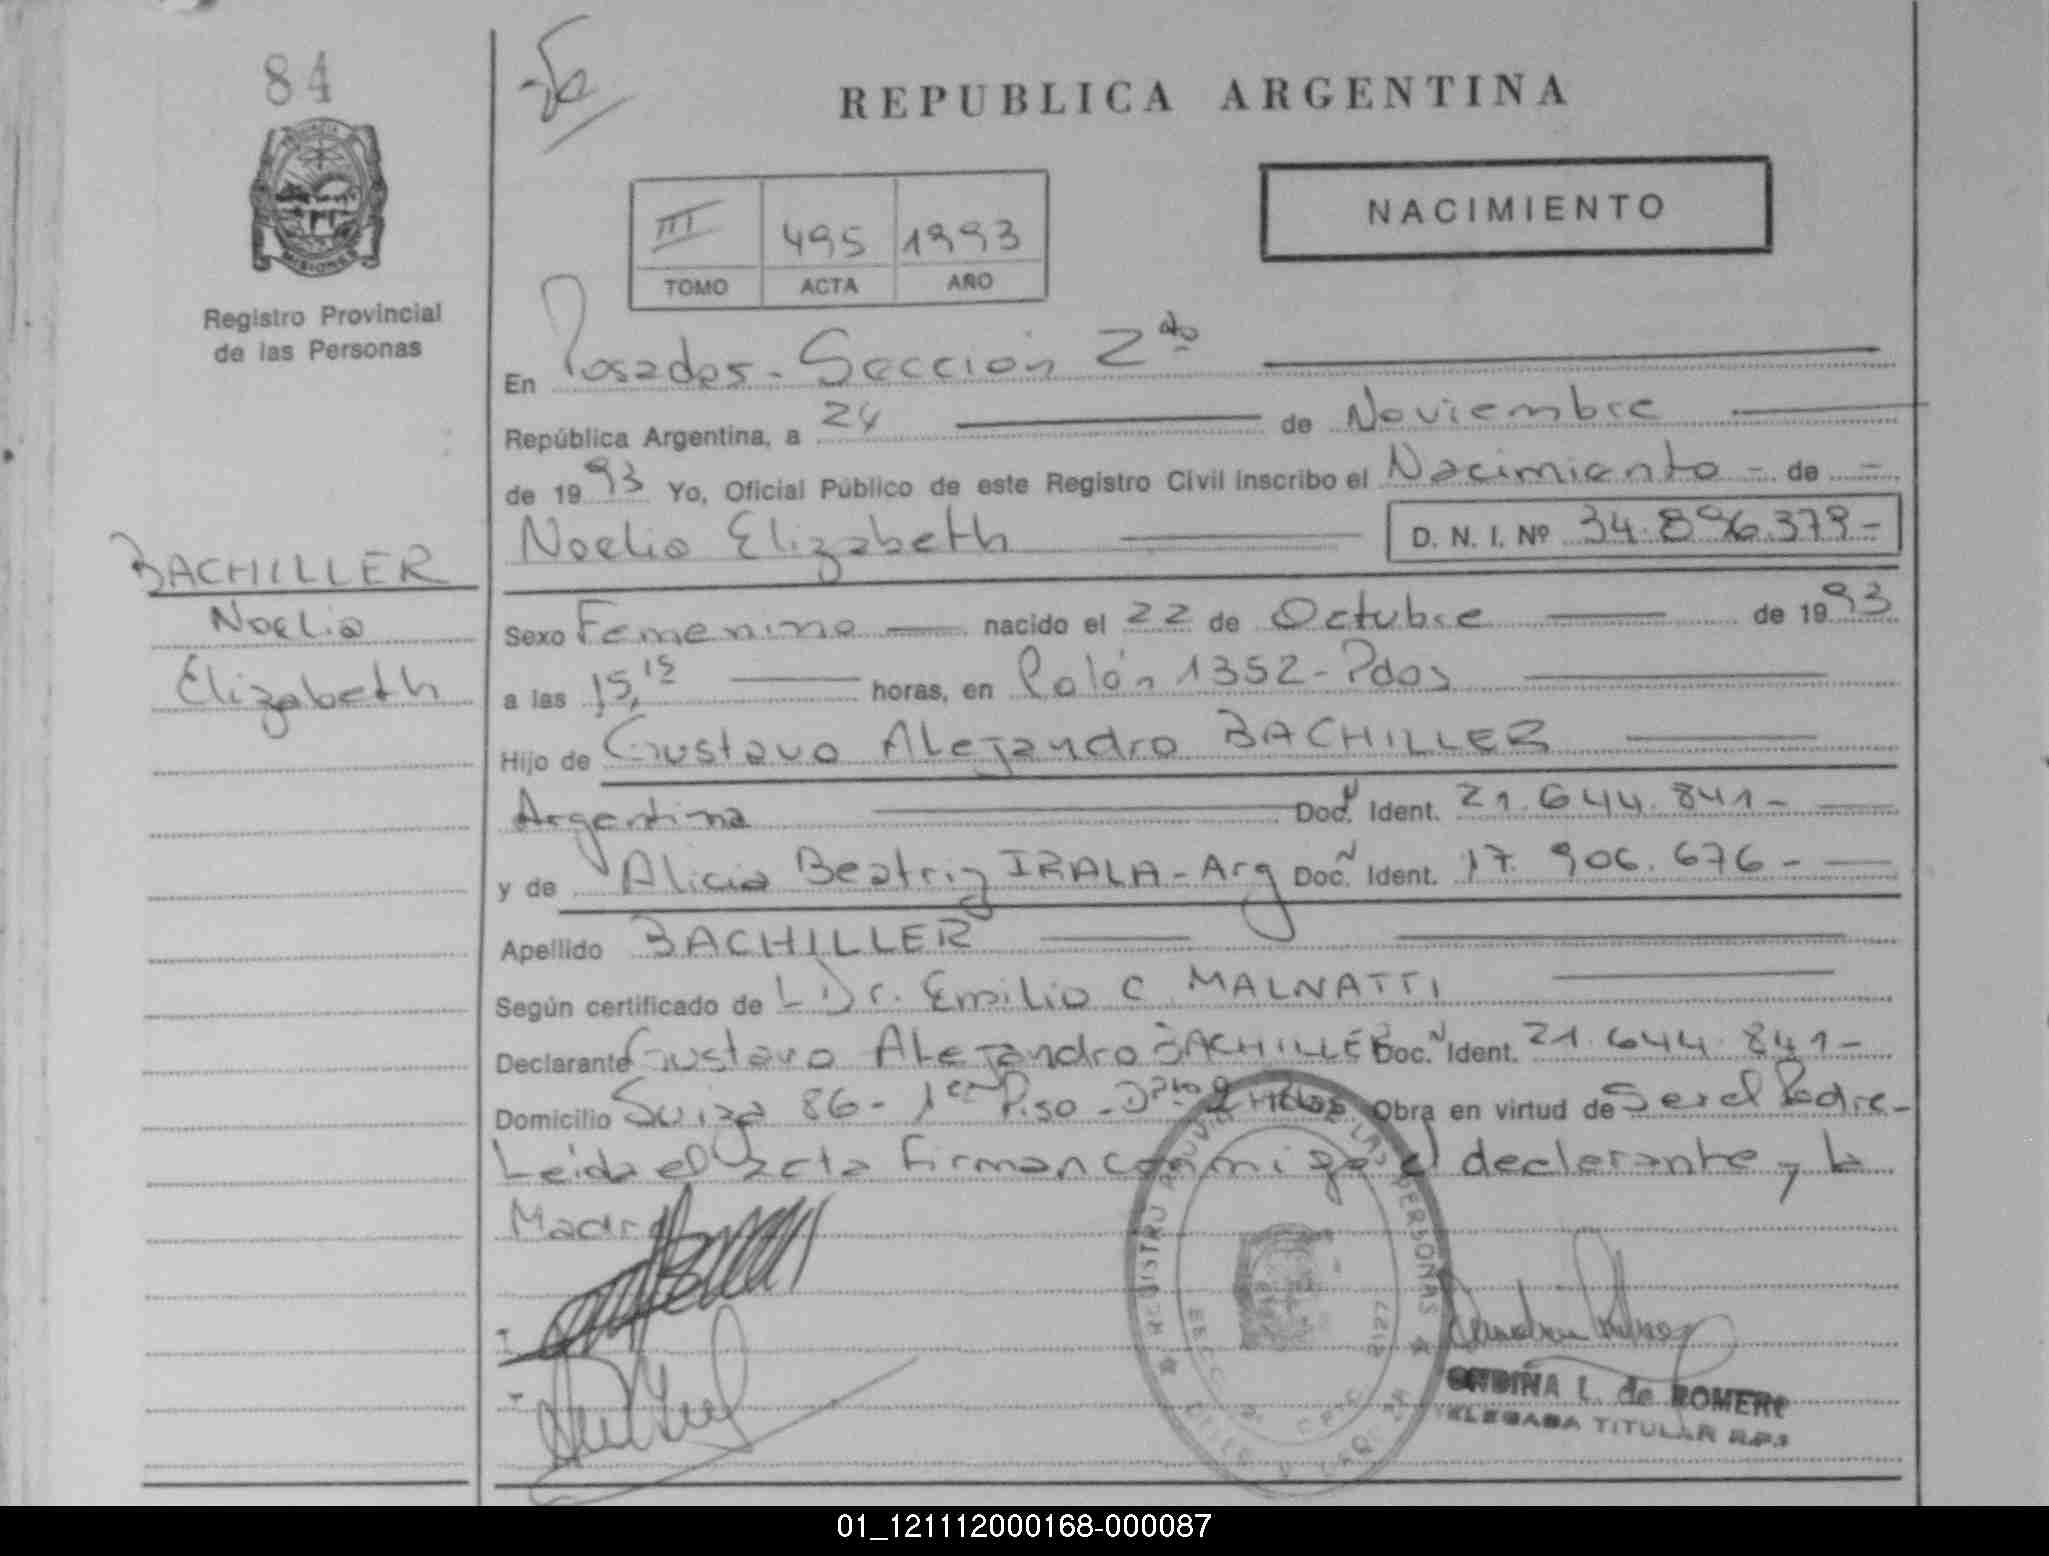 84
REPUBLICA ARGENTINA
NACIMIENTO
III 495 1993
TOMO ACTA AÑO
MISIONES
Registro Provincial
de las Personas
En Posadas - Sección 2da
República Argentina, a 24 de Noviembre
de 1993 Yo, Oficial Público de este Registro Civil inscribo el Nacimiento - de -
Noelia Elizabeth D. N. I. Nº 34.896.379-
BACHILLER
Noelia
Elizabeth
Sexo Femenino nacido el 22 de Octubre de 1993
a las 15,15 horas, en Colón 1352 - Pdas
Hijo de Gustavo Alejandro BACHILLER
Argentina Doc. N Ident. 21.644.841-
y de Alicia Beatriz IRALA - Arg Doc. N Ident. 17.906.676-
Apellido BACHILLER
Según certificado de L Dr. Emilio C MALNATTI
Declarante Gustavo Alejandro BACHILLER Doc. N Ident. 21.644.841-
Domicilio Suiza 86 - 1er Piso - Dpto 2 Obra en virtud de Ser el Padre-
Leída el acta firman conmigo el declarante y la
Madre
REGISTRO PROVINCIAL DE LAS PERSONAS
2127
L. de ROMERO
DELEGADA TITULAR R.P.
01_121112000168-000087